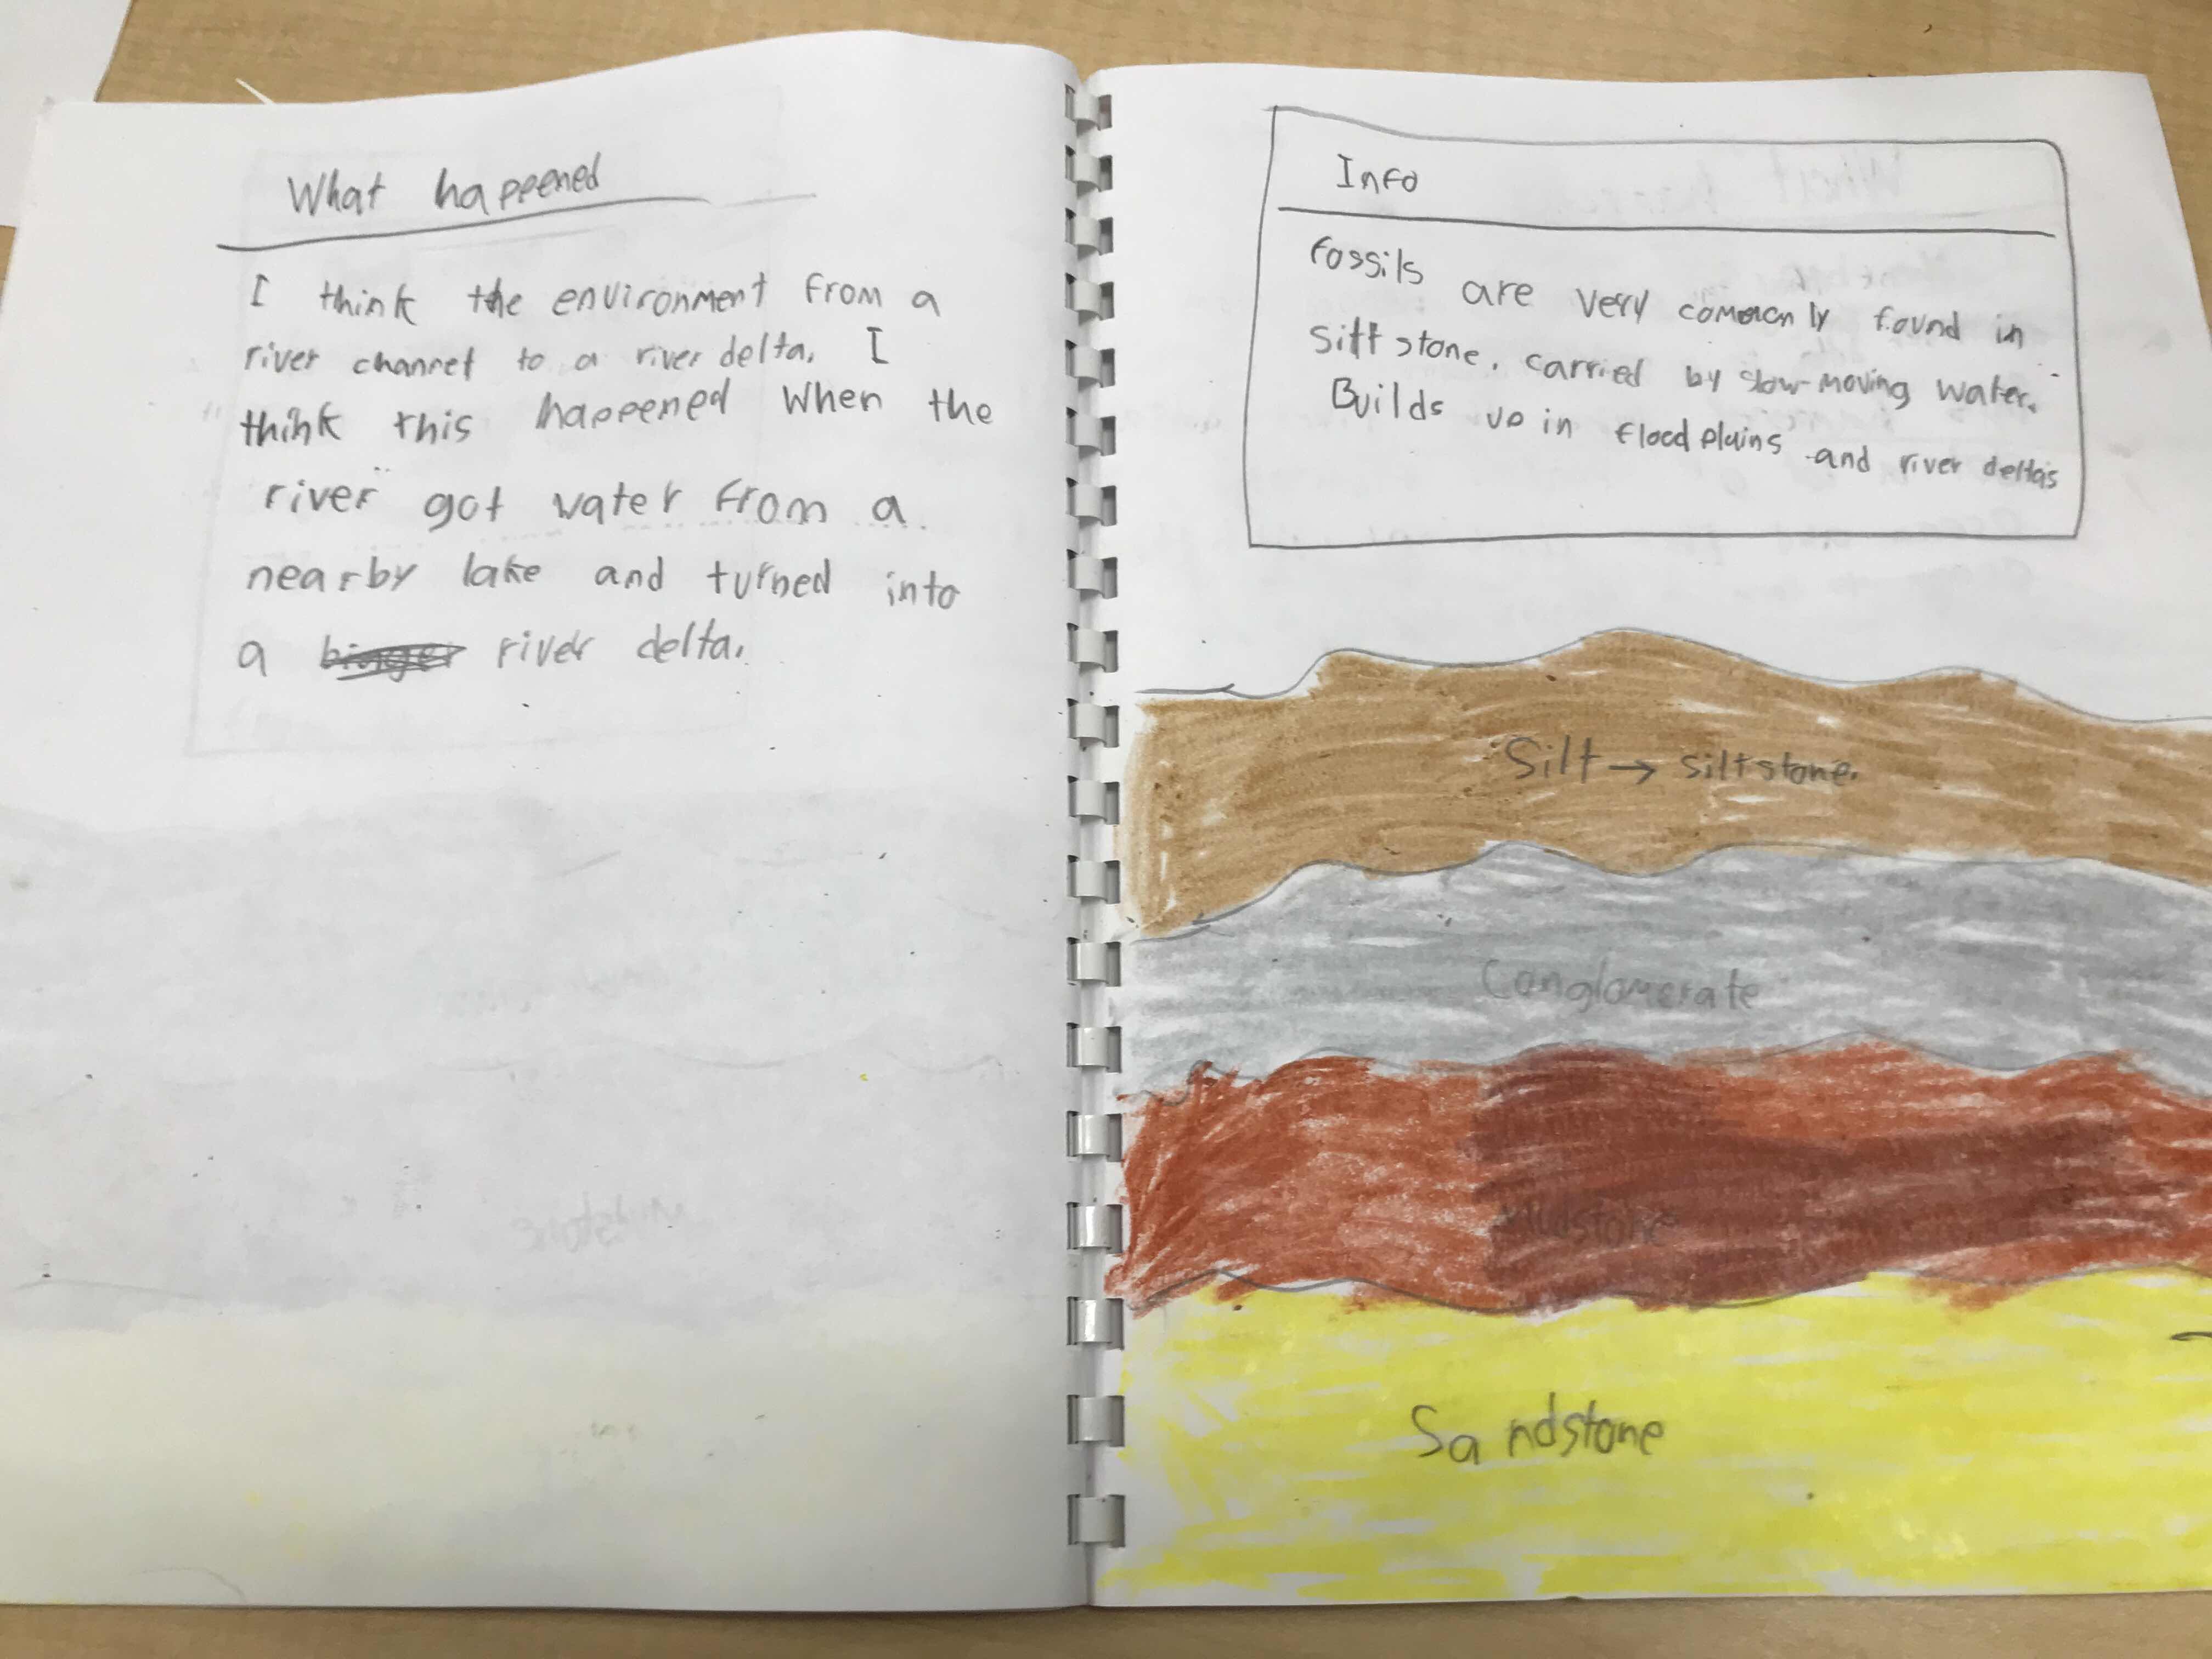 What happened
I think the environment from a
river channel to a river delta. I
think this happened when the
river got water from a
nearby lake and turned into
a bigger river delta.
Info
Fossils are very commonly found in
siltstone. carried by slow-moving water.
Builds up in floodplains and river deltas
Silt → siltstone.
Conglomerate
Mudstone
Sandstone